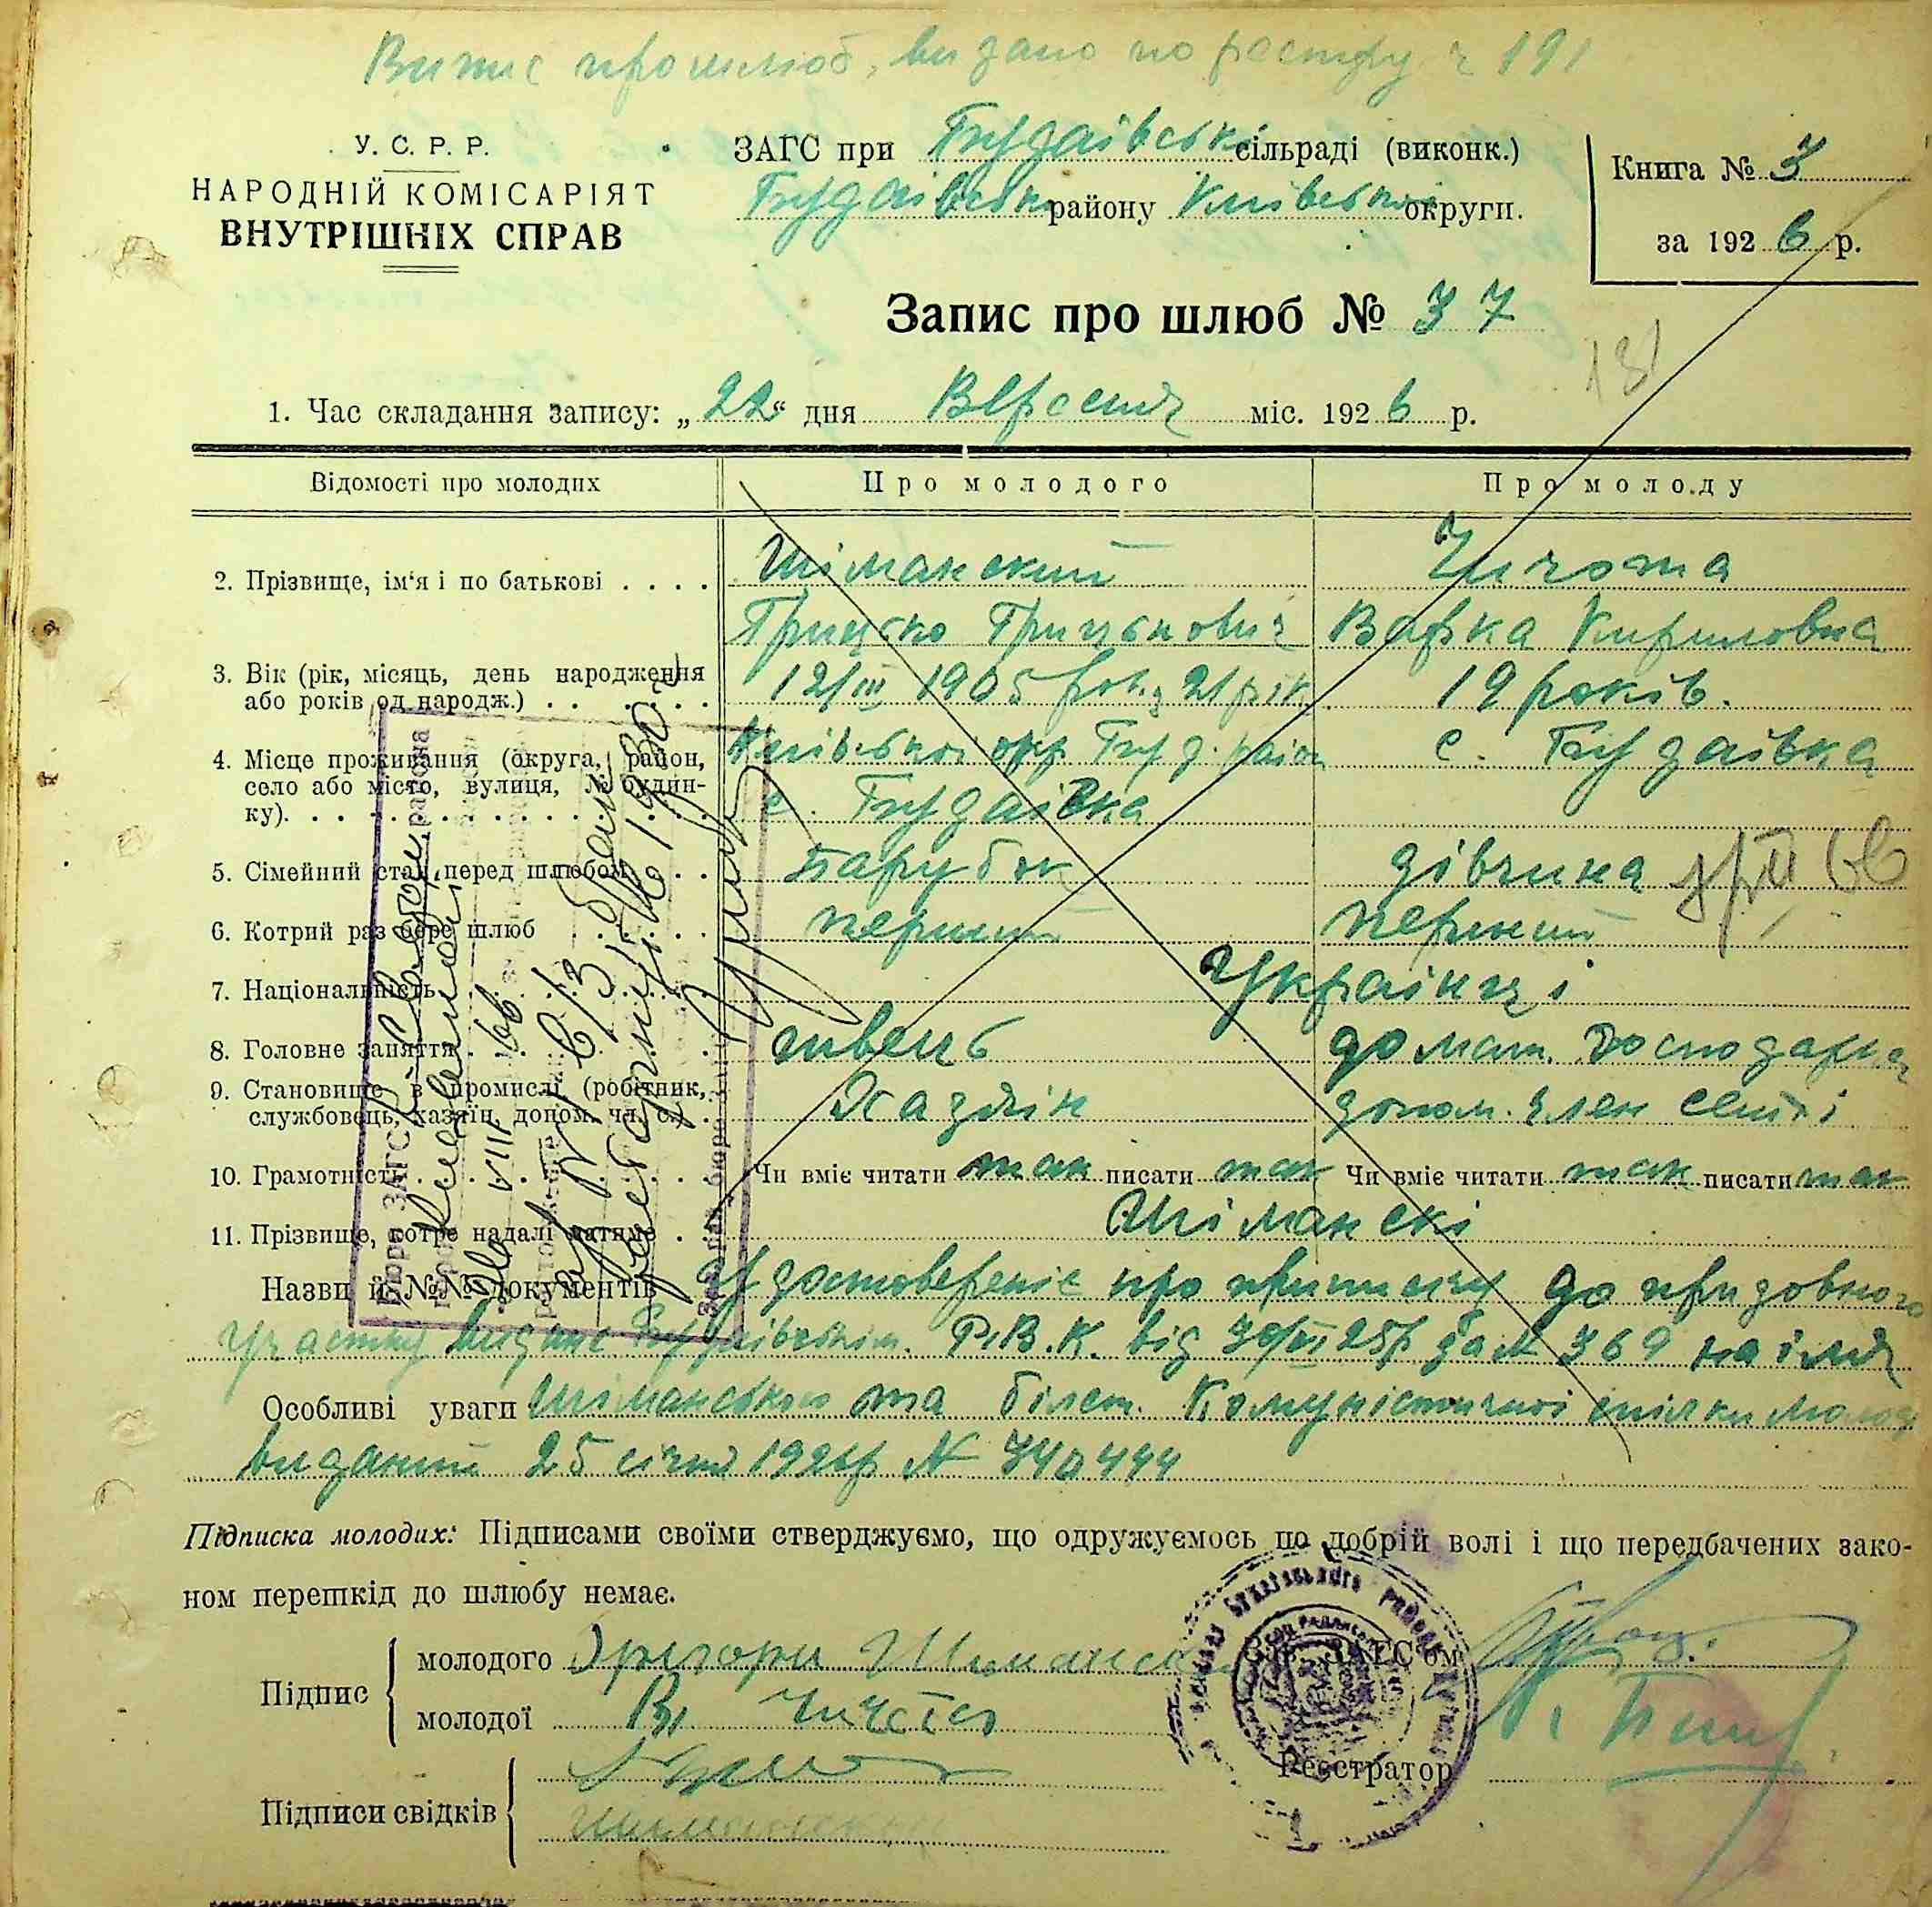 Випис про шлюб, видано по реєстру ч 191
У. С. Р. Р.
НАРОДНІЙ КОМІСАРІЯТ
ВНУТРІШНІХ СПРАВ
ЗАГС при Будаівські сільраді (виконк.)
Будаівськ району Київської округи.
Книга № 3
за 1926 р.
Запис про шлюб № 37
181
1. Час складання запису: „22“ дня Вересня міс. 1926 р.
Відомості про молодих Про молодого Про молоду
2. Прізвище, ім‘я і по батькові . . . . Шіманский Чичота
Грицько Грицькович Варка Кириловна
3. Вік (рік, місяць, день народження 12/III 1905 21 рік 19 років.
або років од народж.) . . . . . .
4. Місце проживання (округа, район, Київської окр. Буд. район с. Будаівка
село або місто, вулиця, № будин-
ку). с. Будаівка
5. Сімейний стан перед шлюбом . . парубок дівчина
6. Котрий раз бере шлюб перший перший
7. Національність Українці
8. Головне заняття швець домаш. господарка
9. Становище в промислі (робітник, Хазяїн допом. член семї
службовець, хазяїн, допом. чл. с.)
10. Грамотність Чи вміє читати так писати так Чи вміє читати так писати так
11. Прізвище, котре надалі матиме Шіманскі
Назви й №№ документів Удостоверение про приписку до призовного
участку видане Будаівським. Р.В.К. від 25р за № 369 на імя
Особливі уваги Шіманского та білет. Комуністичної спілки молоді
виданий 25 січня № 740444
Підписка молодих: Підписами своїми стверджуємо, що одружуємось по добрій волі і що передбачених зако-
ном перешкід до шлюбу немає.
Підпис
молодого Григори Шиманский
Зав. ЗАГС‘ом
молодої В. Чичота
Реєстратор
Підписи свідків